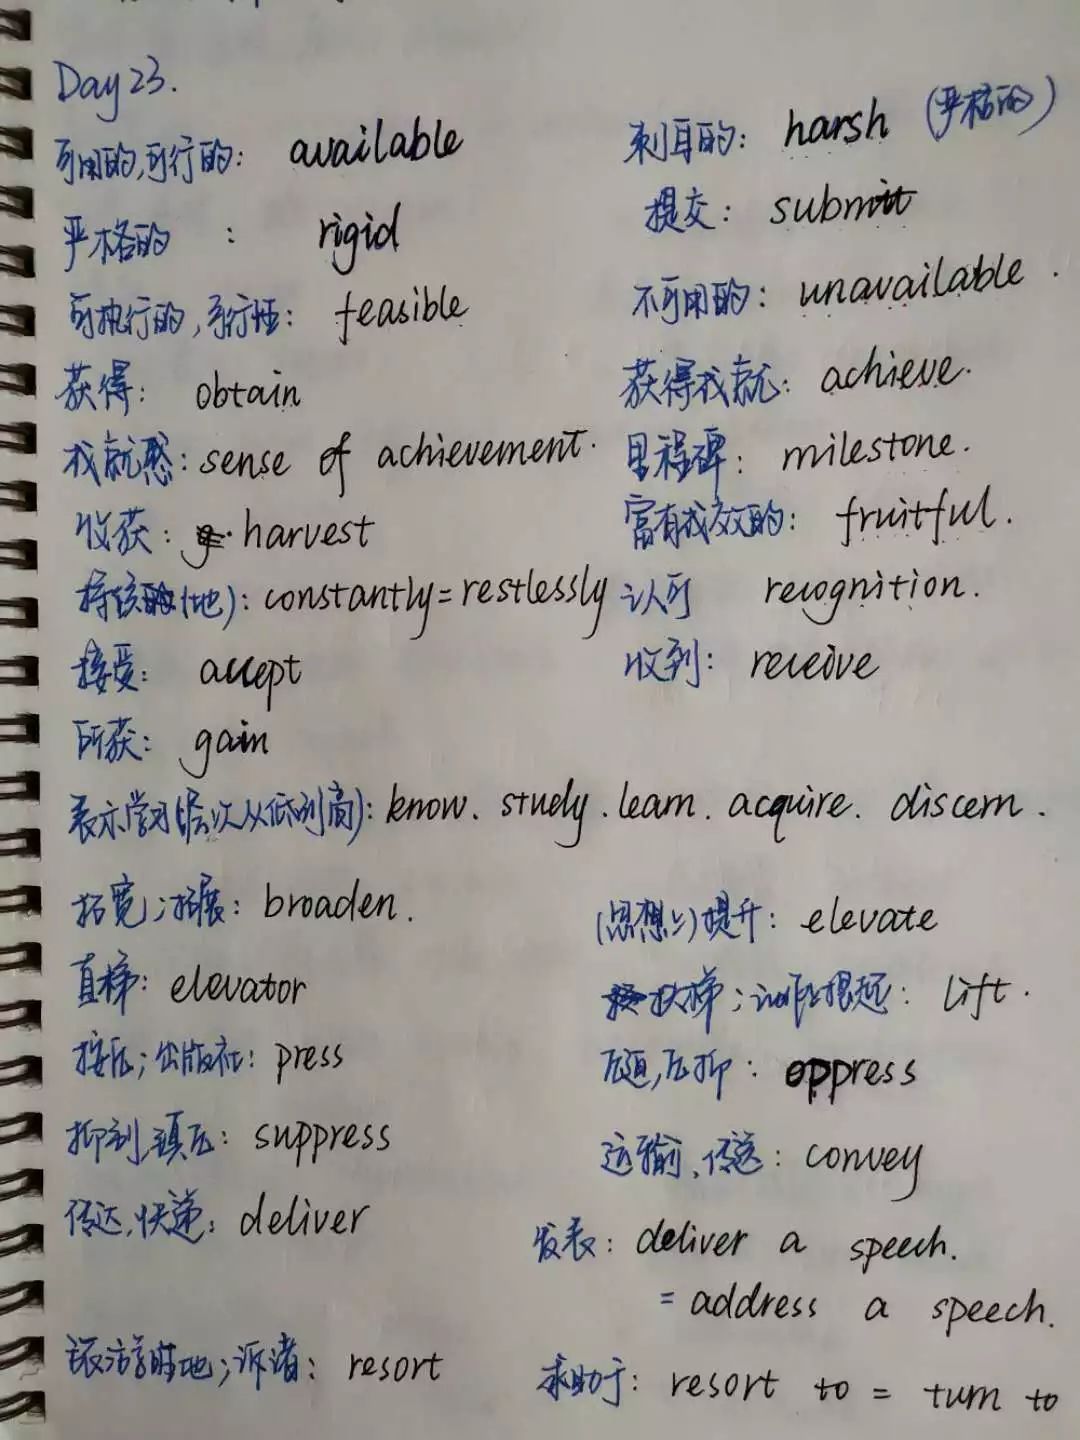 Day 23.
可用的,可行的: available 刺耳的: harsh (严格的)
严格的 : rigid 提交: submit
可执行的,可行性: feasible 不可用的: unavailable.
获得: obtain 获得成就: achieve.
成就感: sense of achievement. 里程碑: milestone.
收获: harvest 富有成效的: fruitful.
持续(地): constantly=restlessly 认可 recognition.
接受: accept 收到: receive
所获: gain
表示学习(层次从低到高): know. study. learn. acquire. discern.
拓宽;拓展: broaden. (思想上)提升: elevate
直梯: elevator 扶梯; lift.
按压;出版社: press 压迫,压抑: oppress
抑制,镇压: suppress 运输,传送: convey
传达,快递: deliver 发表: deliver a speech.
= address a speech.
旅游胜地;诉诸: resort 求助于: resort to = turn to